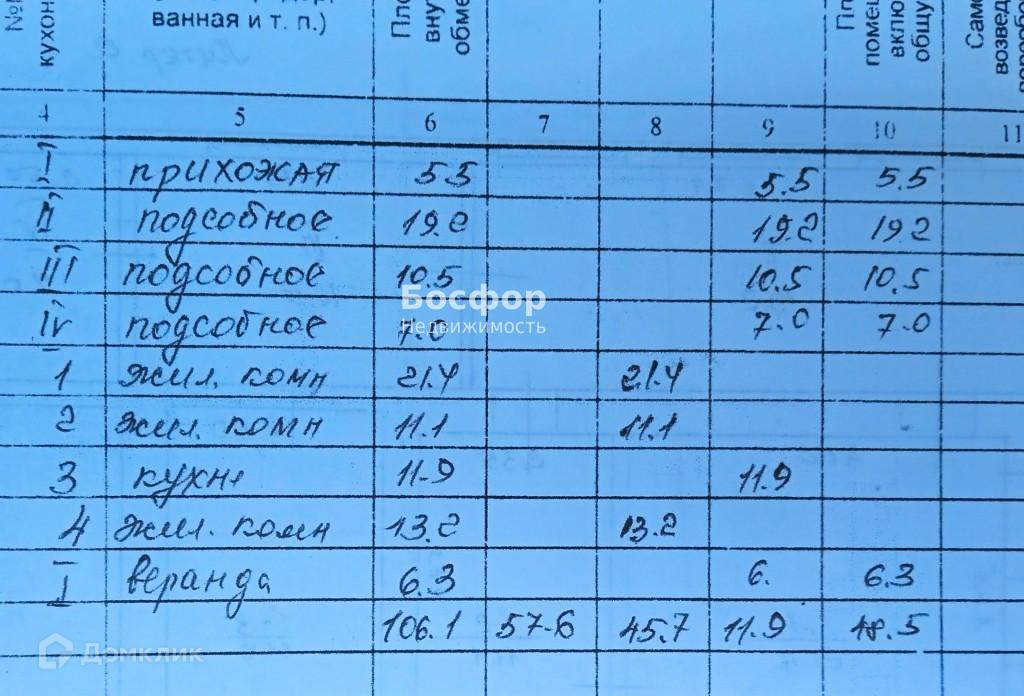 №№
кухон
ванная и т. п.)
Пло
внут
обме
Пл
помещ
вклю
общу
Само
возвед
Литер
4 5 6 7 8 9 10 11
I прихожая 5.5 5.5 5.5
II подсобное 19.2 19.2 19.2
III подсобное 10.5 10.5 10.5
IV подсобное 7.0 7.0 7.0
Босфор
Недвижимость
1 жил. комн 21.4 21.4
2 жил. комн 11.1 11.1
3 кухне 11.9 11.9
4 жил. комн 13.2 13.2
I веранда 6.3 6. 6.3
106.1 57.6 45.7 11.9 48.5
Домклик